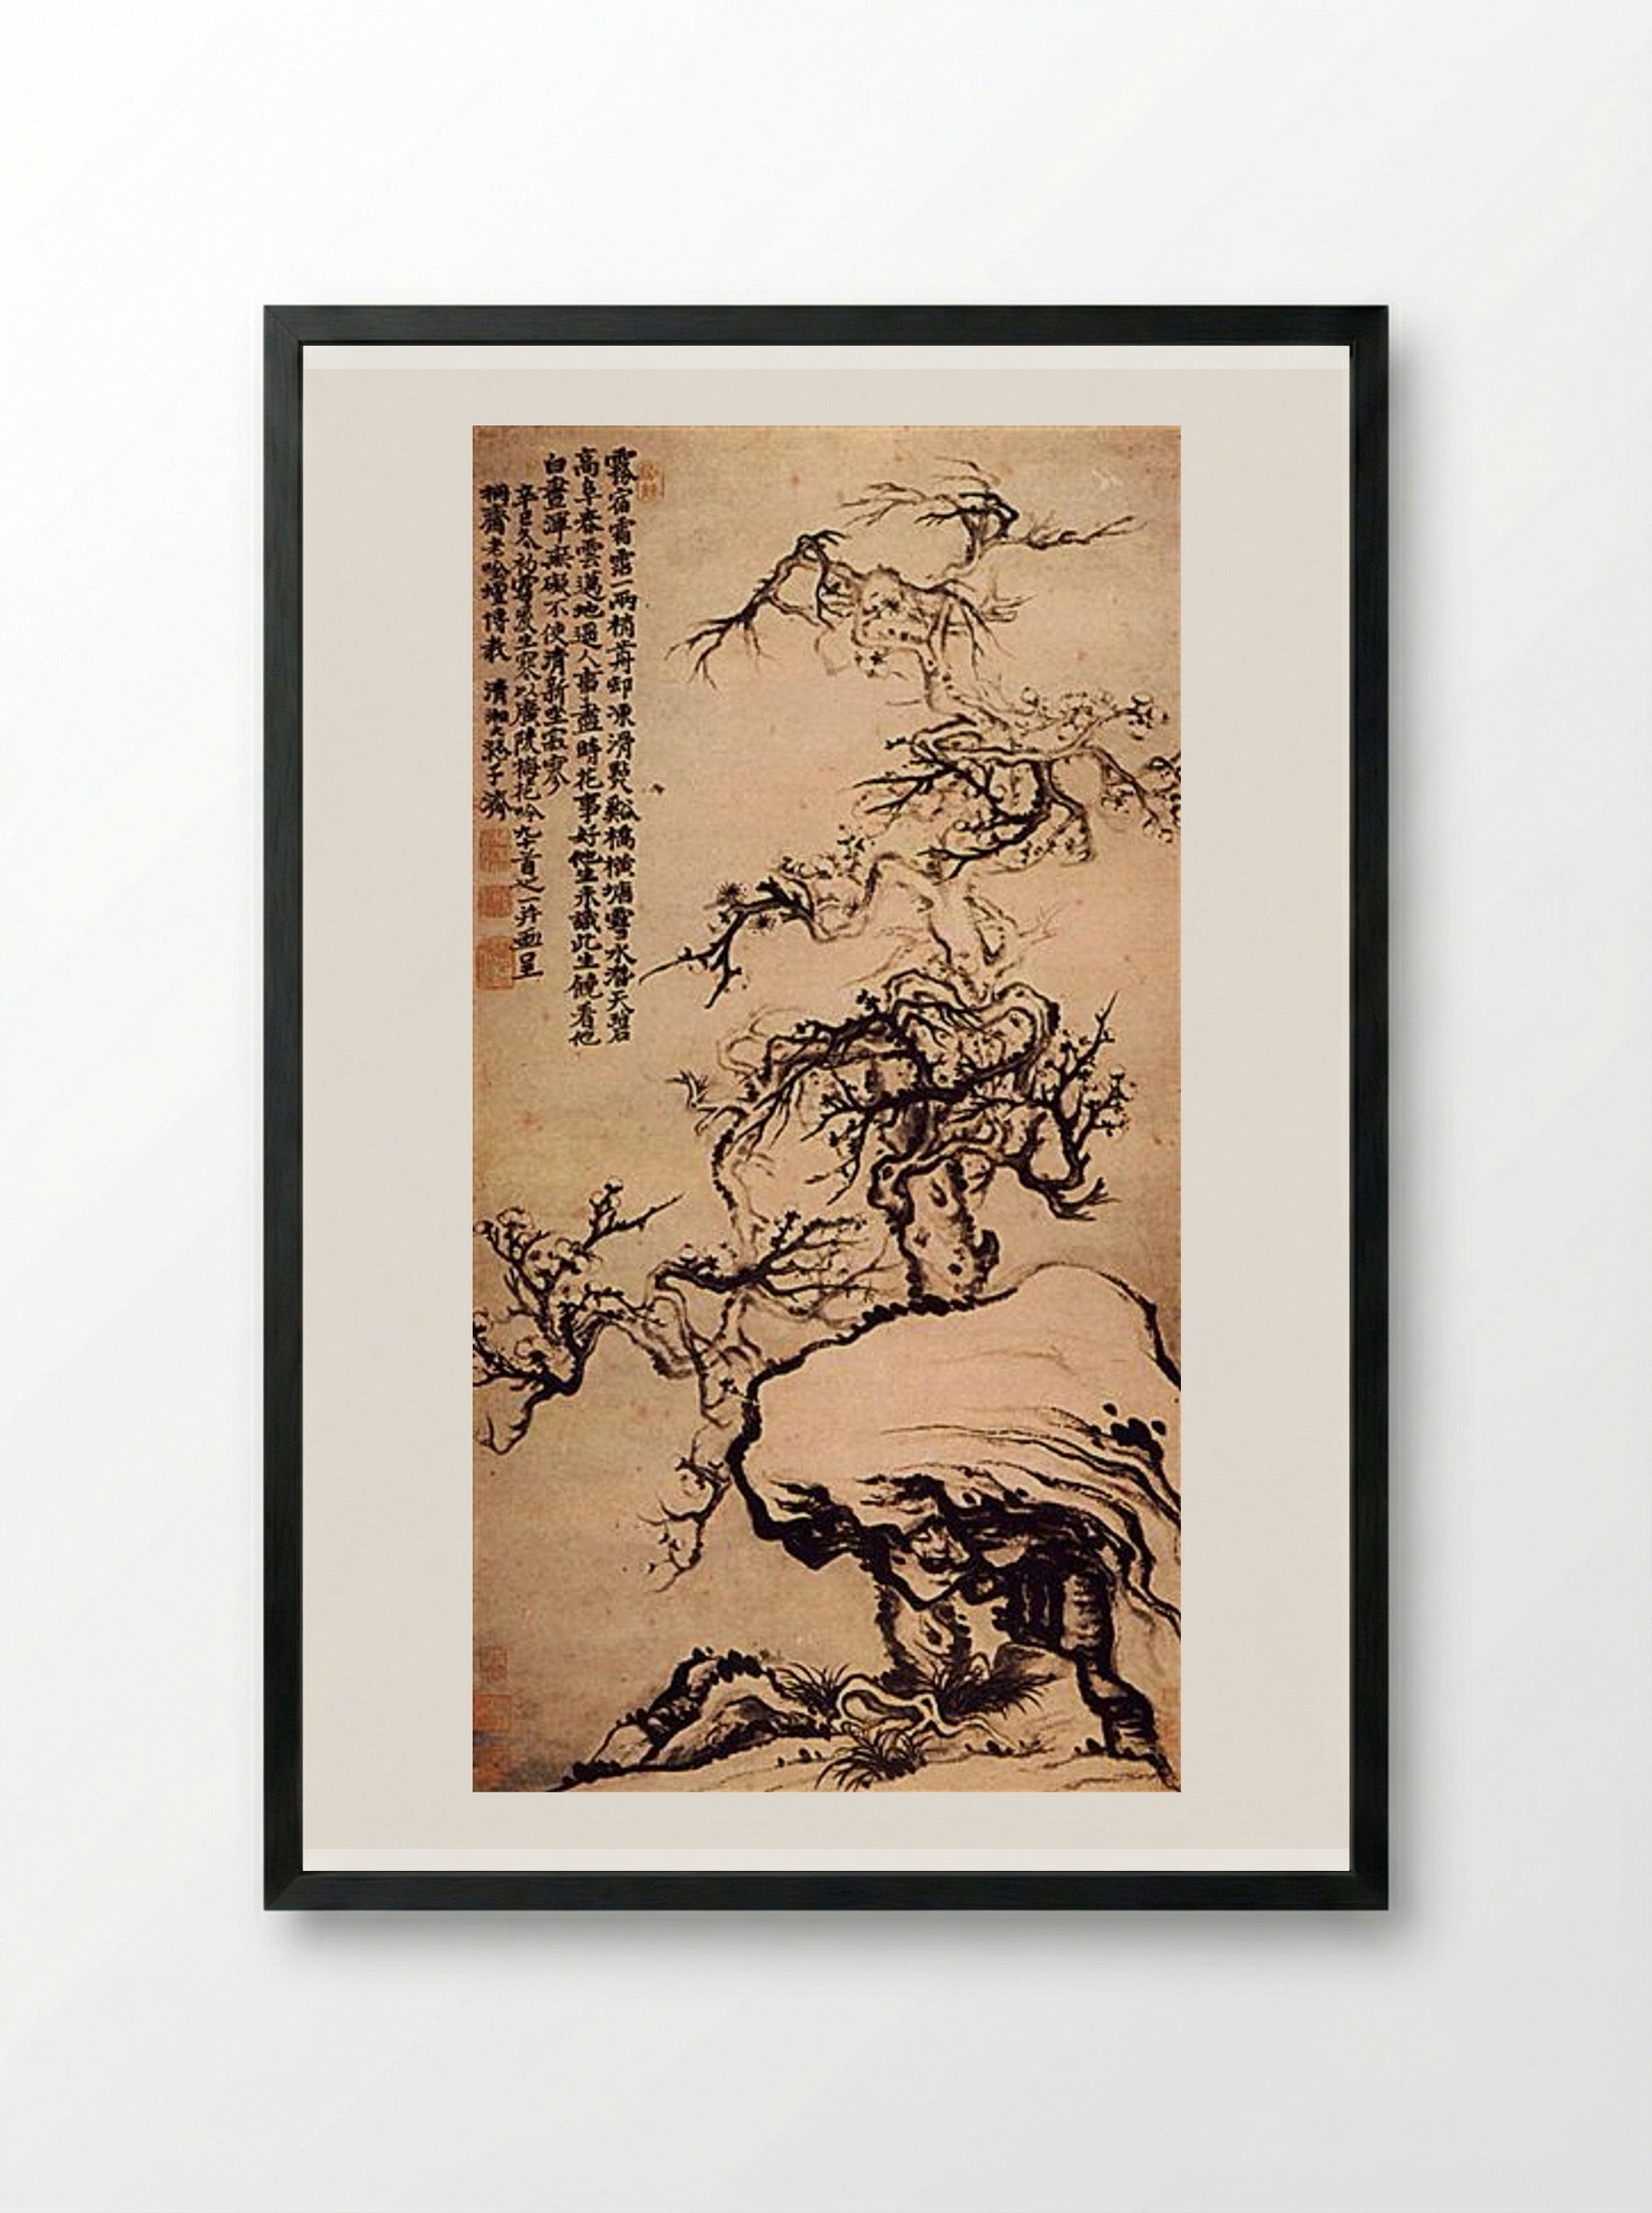 霧宿霜露一兩梢苒卸凍滑點谿橋橫塘雪水潛天碧
高阜春雲邁地過人事盡時花事好他生未識此生饒看他
白晝渾無礙不使清新坐寂寥
辛巳冬初雪以廣陵梅花吟九首之一并畫呈
老吟壇博教 清湘大滌子濟